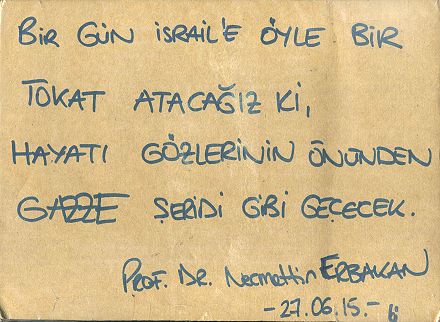 BİR GÜN İSRAİL'E ÖYLE BİR
TOKAT ATACAĞIZ Kİ,
HAYATI GÖZLERİNİN ÖNÜNDEN
GAZZE ŞERİDİ GİBİ GEÇECEK.
PROF. DR. Necmettin ERBAKAN
-27.06.15.-